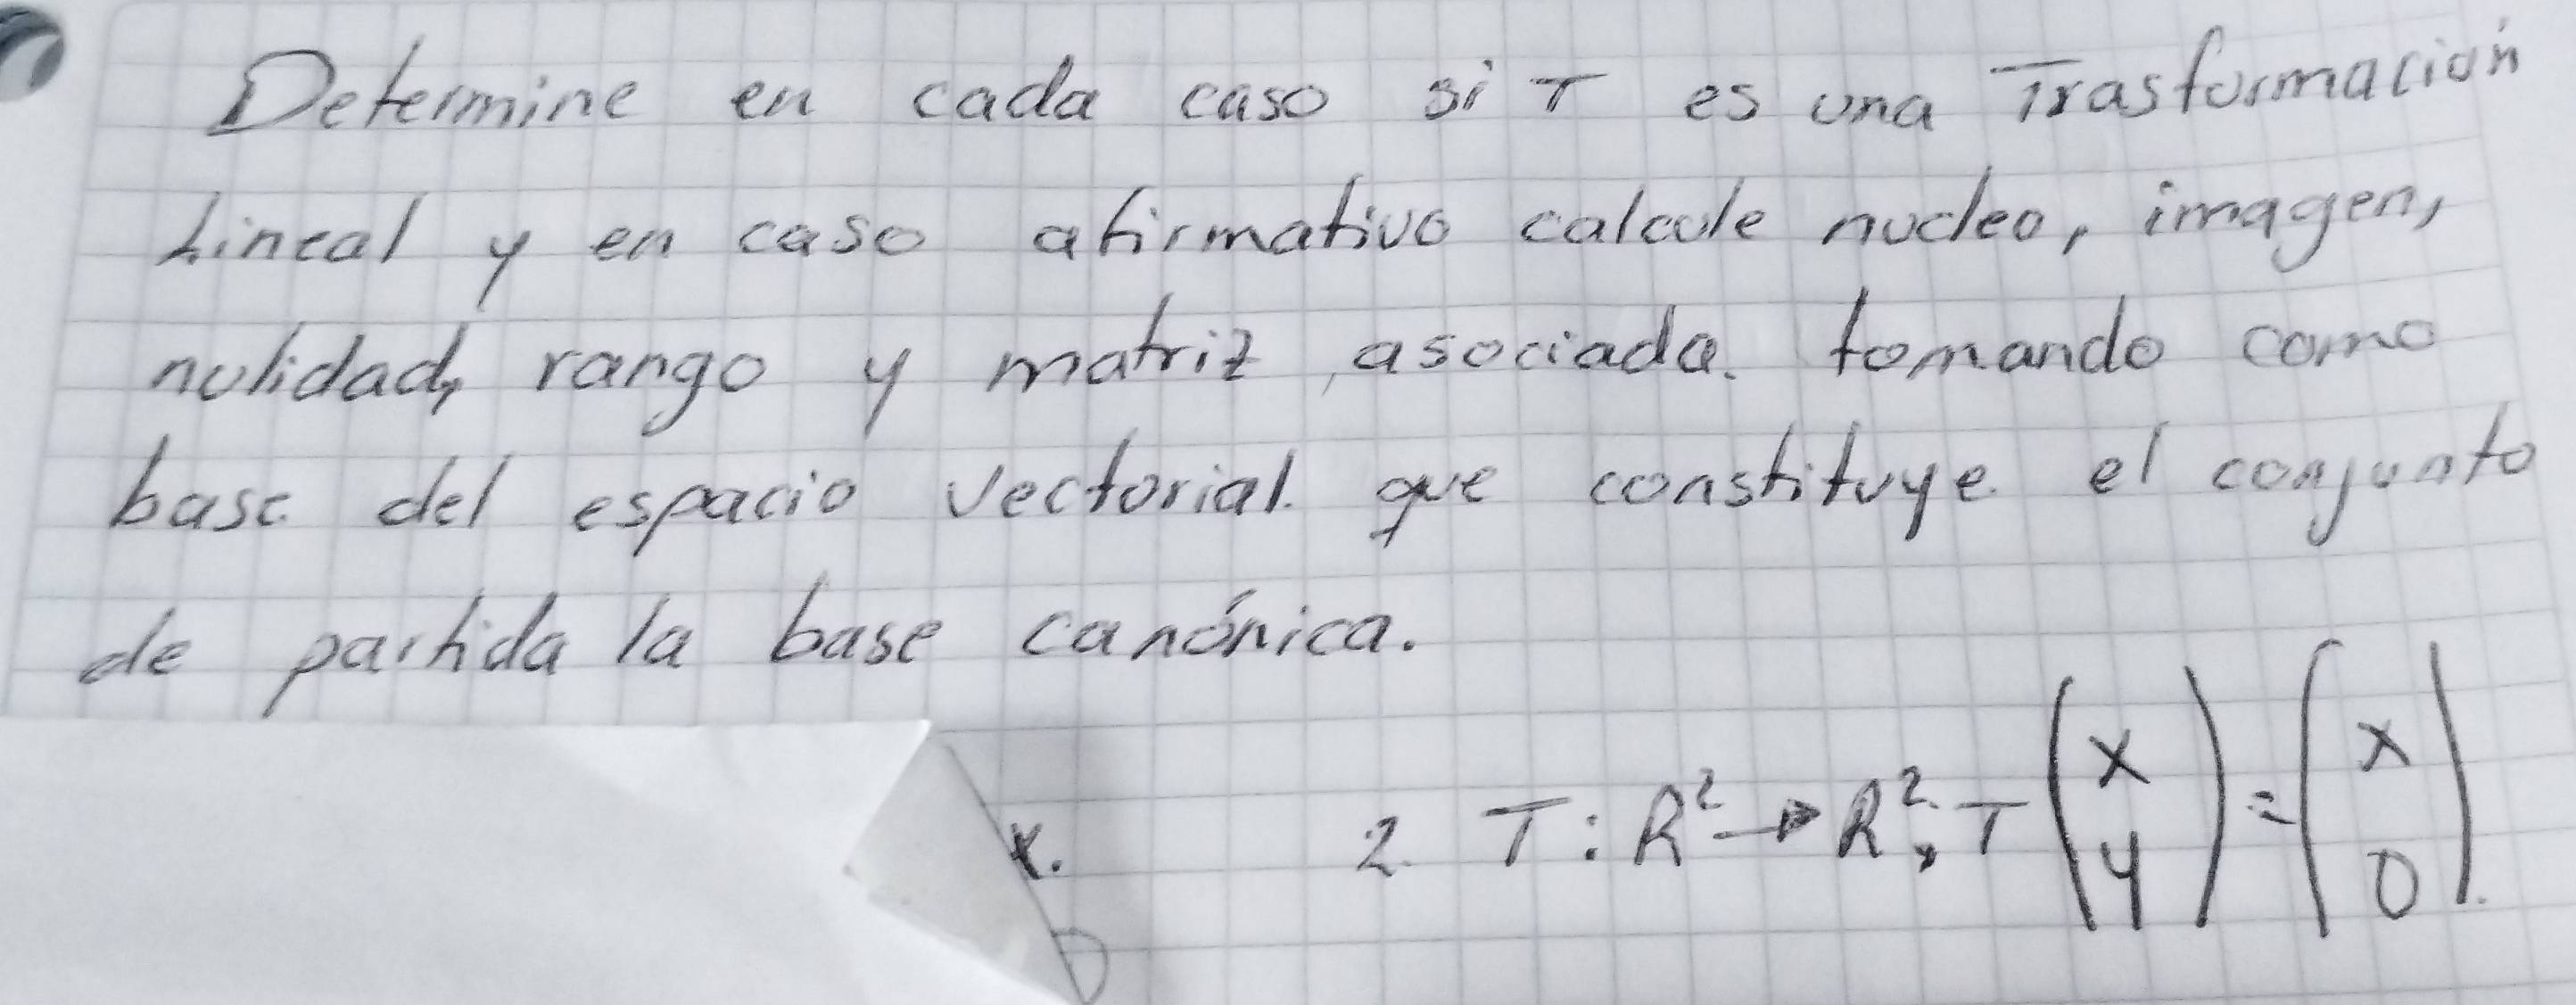 Determine en cada caso si T es una Trasformación
Lineal y en caso afirmativo calcule nucleo, imagen,
nulidad, rango y matriz asociada. tomando como
base del espacio vectorial. que constituye el conjunto
de partida la base canónica.
x. 2. T: R² → R²; T (x y) = (x 0).